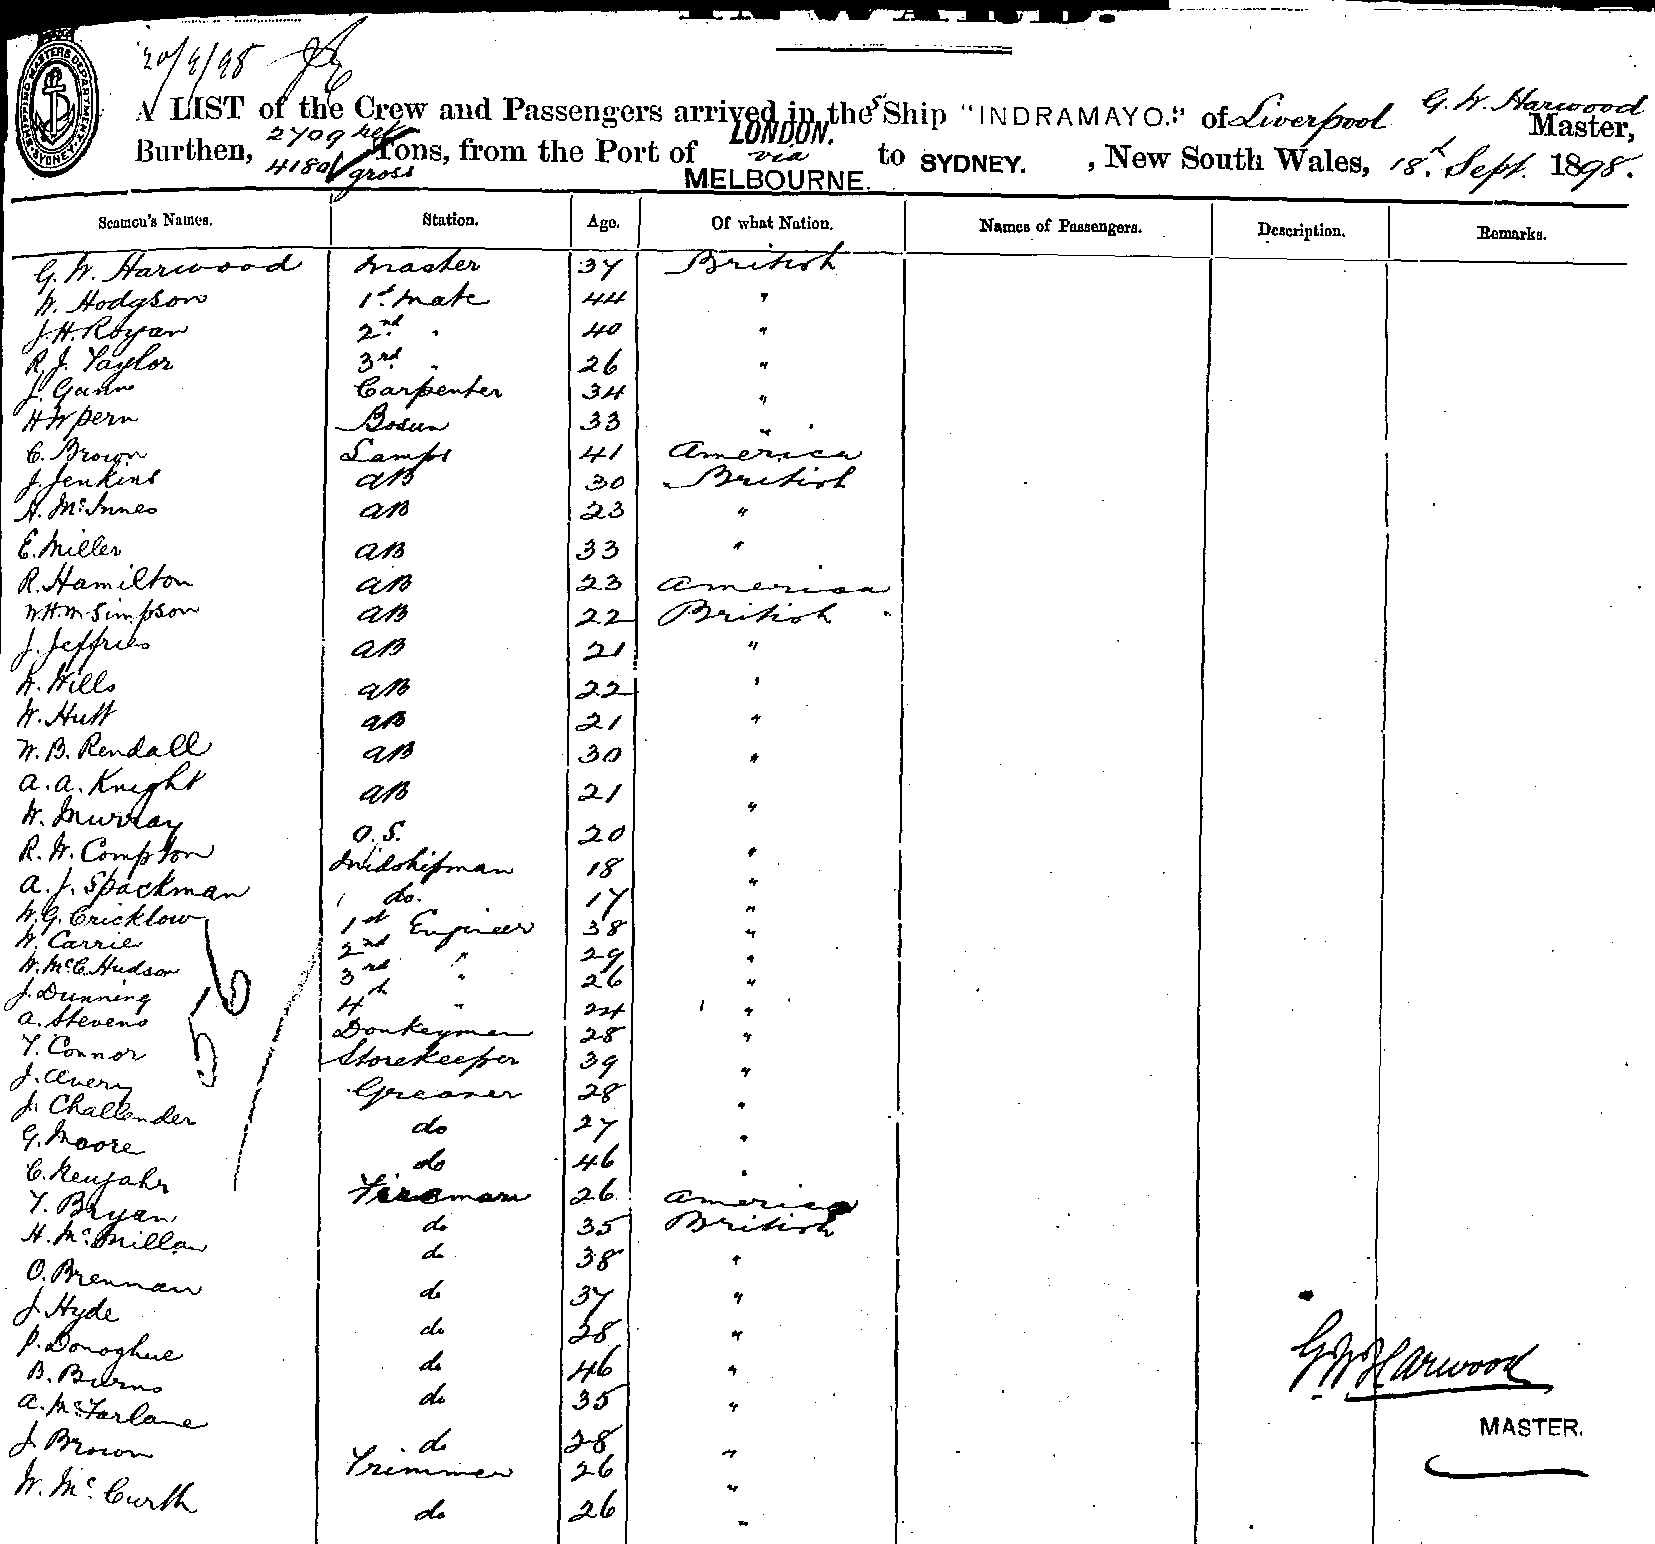 20/9/98
A LIST of the Crew and Passengers arrived in the S Ship "INDRAMAYO." of Liverpool G. W. Harwood Master,
Burthen, 2709 net 4180 gross Tons, from the Port of LONDON. via MELBOURNE. to SYDNEY. , New South Wales, 18th Sept. 1898.
Seamen's Names. Station. Age. Of what Nation. Names of Passengers. Description. Remarks.
G. W. Harwood Master 37 British
W. Hodgson 1st Mate 44 "
J. H. Royan 2nd " 40 "
R. J. Taylor 3rd " 26 "
J. Gann Carpenter 34 "
H W Pern Bosun 33 "
C. Brown Lamps 41 America
J. Jenkins AB 30 British
A. McInnes AB 23 "
E. Miller AB 33 "
R. Hamilton AB 23 America
W. H. M. Simpson AB 22 British
J. Jeffries AB 21 "
W. Wills AB 22 "
W. Hutt AB 21 "
W. B. Rendall AB 30 "
A. A. Knight AB 21 "
W. Murray O.S. 20 "
R. W. Compton Midshipman 18 "
A. J. Spackman do. 17 "
W. G. Cricklow 1st Engineer 38 "
W. Carrie 2nd " 29 "
W. McC. Hudson 3rd " 26 "
J. Dunning 4th " 24 "
A. Stevens Donkeyman 28 "
T. Connor Storekeeper 39 "
J. Avery Greaser 28 "
J. Challender do 27 "
G. Moore do 46 "
C. Neujahr Fireman 26 America
T. Bryan do 35 British
H. McMillan do 38 "
O. Brennan do 37 "
J. Hyde do 28 "
P. Donoghue do 46 "
B. Burns do 35 "
A. McFarlane do 28 "
J. Brown Trimmer 26 "
W. McCurth do 26 "
56
G W Harwood
MASTER.